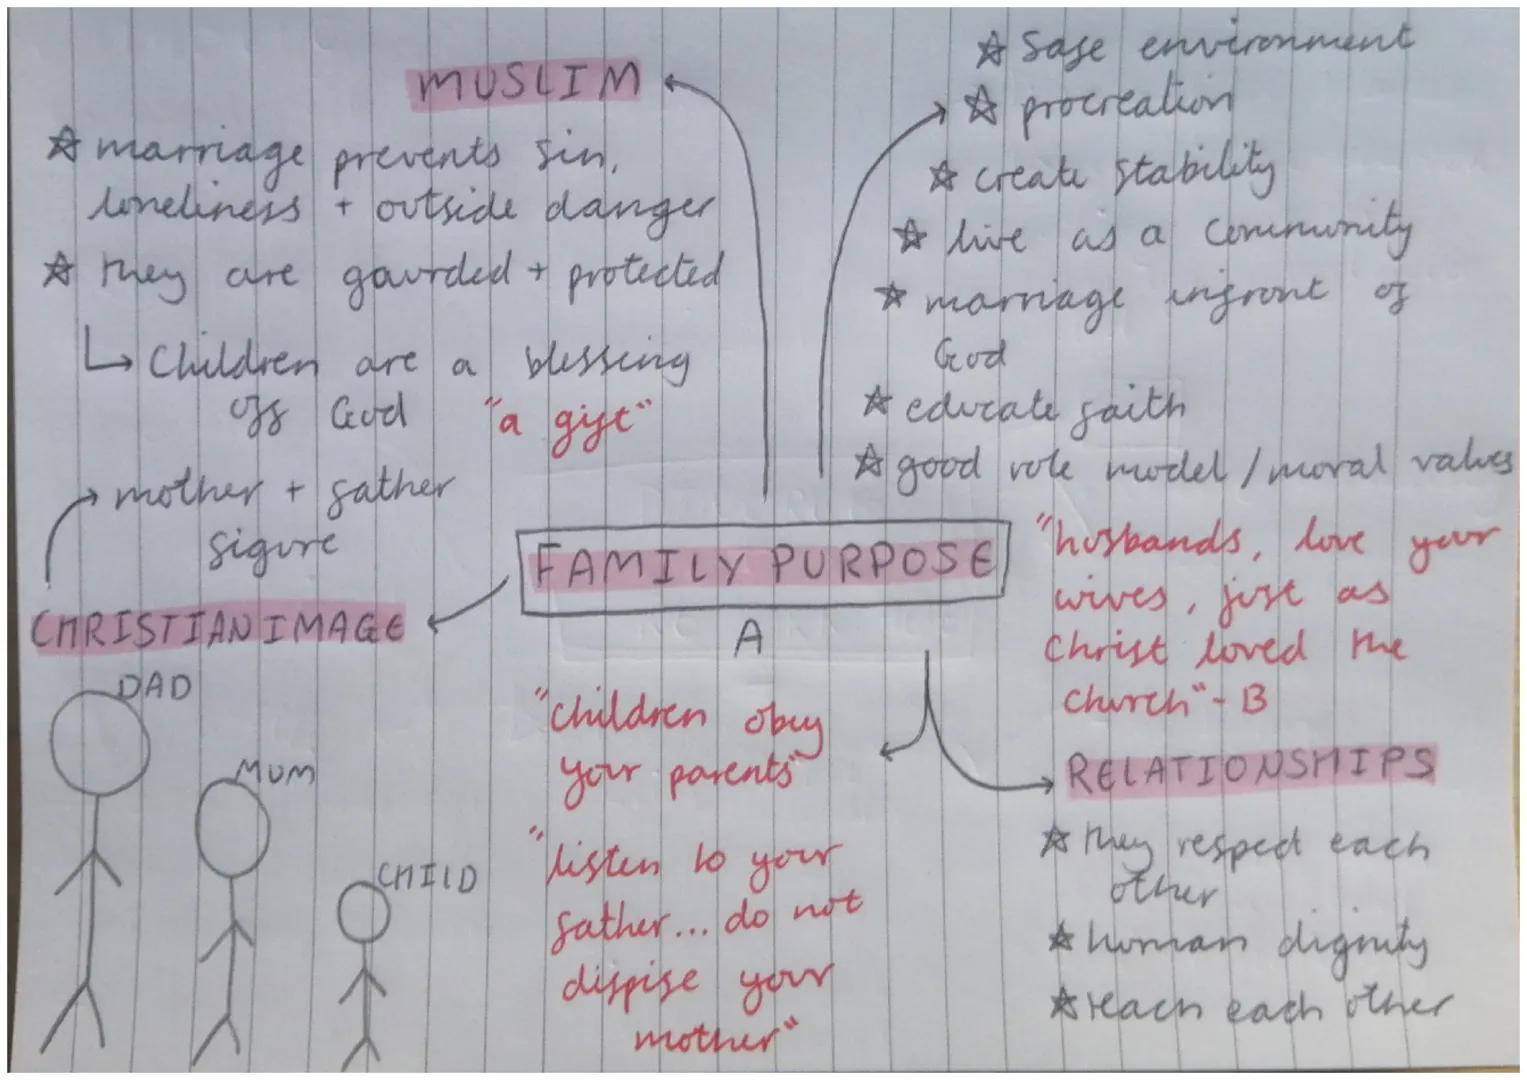 MUSLIM
☆ marriage prevents sin,
loneliness + outside danger
☆ they are gaurded + protected
↳ Children are a blessing
off God "a gift"
☆ Safe environment
☆ procreation
☆ create stability
☆ live as a community
☆ marriage infront of
God
☆ educate faith
☆ good role model / moral values
FAMILY PURPOSE
A
mother + father
figure
CHRISTIAN IMAGE
DAD
MUM
CHILD
"children obey
your parents"
"listen to your
father... do not
dispise your
mother"
"husbands, love your
wives, just as
Christ loved the
church" - B
RELATIONSHIPS
☆ they respect each
other
☆ human dignity
☆ teach each other